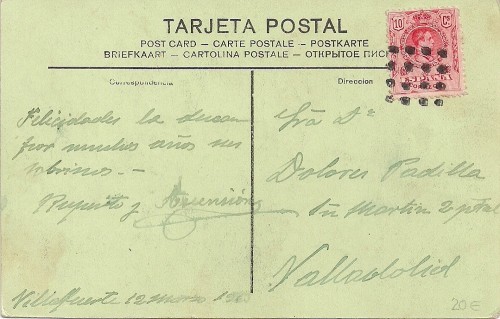 TARJETA POSTAL
POST CARD — CARTE POSTALE — POSTKARTE
BRIEFKAART — CARTOLINA POSTALE — ОТКРЫТОЕ ПИСН
Correspondencia
Direccion
10 Cs
Felicidades la desean
por muchos años sus
sobrinos. —
Ruperto y Ascensión
Villafuerte 12 marzo
Sra Da
Dolores Padilla
Sn Martin 2 pral
Valladolid
20€